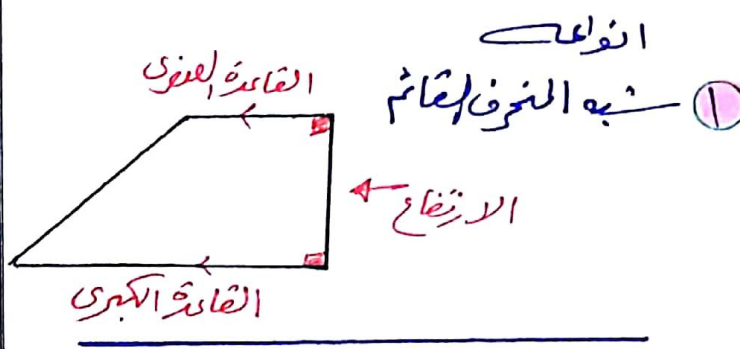 انواعه
١ شبه المنحرف القائم
القاعدة الصغرى
الارتفاع
القاعدة الكبرى